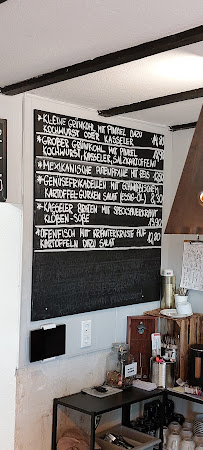 *KLEINE GRÜNKOHL MIT PINKEL DAZU
KOCHWURST ODER KASSELER 14,90
*GROßER GRÜNKOHL MIT PINKEL
KOCHWURST, KASSELER, SALZKARTOFFELN
*MEXIKANISCHE PUTENPFANNE MIT REIS
*GEMÜSEFRIKADELLEN MIT
KARTOFFEL-GURKEN SALAT (ESSIG-ÖL) 8,50
*KASSELER BRATEN MIT SPECKSAUERKRAUT
KLÖßEN-SOßE
*OFENFISCH MIT KRÄUTERKRUSTE AUF
KARTOFFELN DAZU SALAT